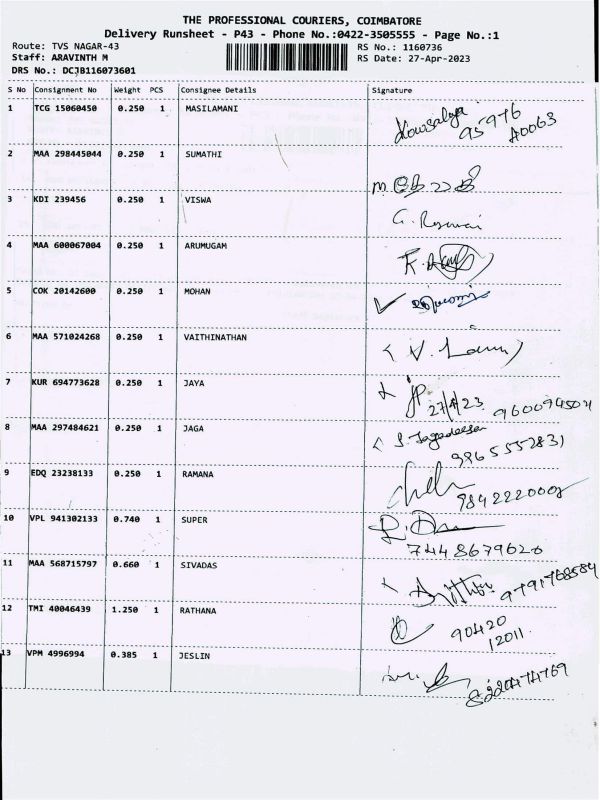 THE PROFESSIONAL COURIERS, COIMBATORE
Delivery Runsheet - P43 - Phone No.:0422-3505555 - Page No.:1
Route: TVS NAGAR-43 RS No.: 1160736
Staff: ARAVINTH M RS Date: 27-Apr-2023
DRS No.: DCJB116073601
S No Consignment No Weight PCS Consignee Details Signature
1 TCG 15060450 0.250 1 MASILAMANI Kowsalya 95976
40063
2 MAA 298445044 0.250 1 SUMATHI
3 KDI 239456 0.250 1 VISWA
4 MAA 600067004 0.250 1 ARUMUGAM
5 COK 20142600 0.250 1 MOHAN
6 MAA 571024268 0.250 1 VAITHINATHAN
7 KUR 694773628 0.250 1 JAYA JP 27/4/23 960094504
8 MAA 297484621 0.250 1 JAGA S. Jagadeesan
9965552831
9 EDQ 23238133 0.250 1 RAMANA
9842220002
10 VPL 941302133 0.740 1 SUPER
7448679620
11 MAA 568715797 0.660 1 SIVADAS 9791768584
12 TMI 40046439 1.250 1 RATHANA 90420
12011
13 VPM 4996994 0.385 1 JESLIN